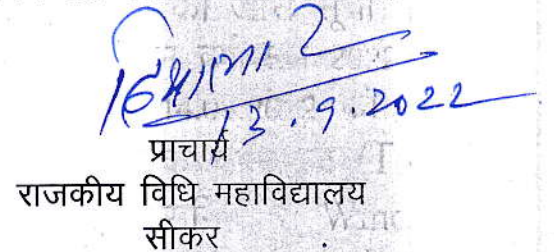 13.9.2022
प्राचार्य
राजकीय विधि महाविद्यालय
सीकर